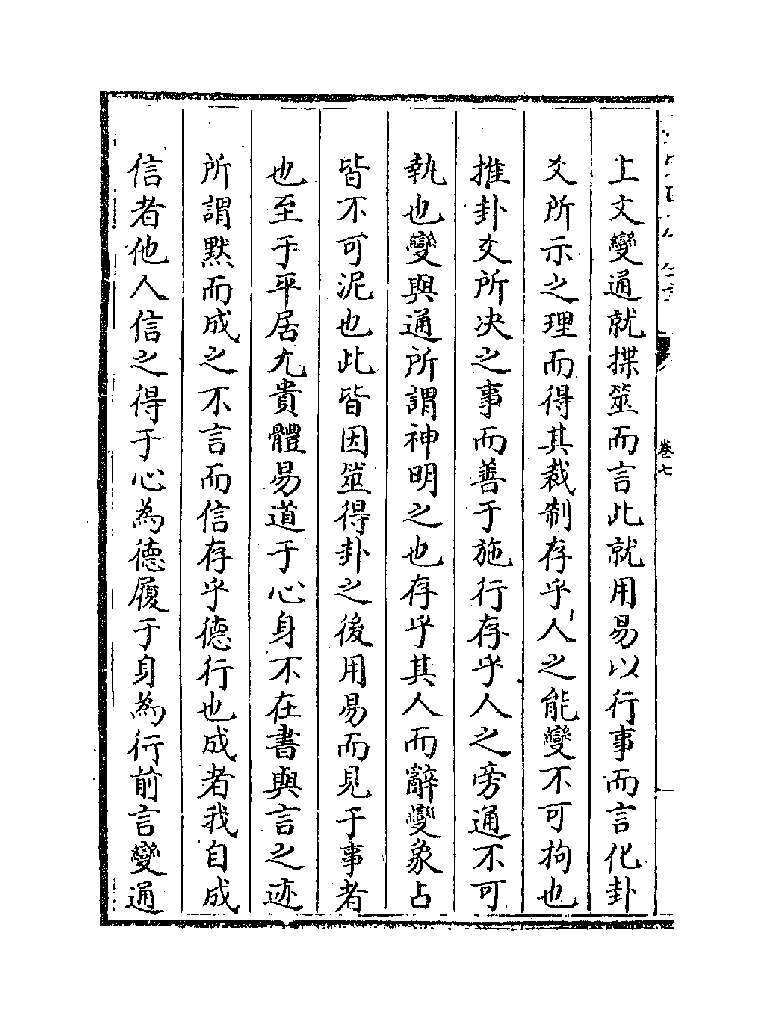 上文變通就揲筮而言此就用易以行事而言化卦
爻所示之理而得其裁制存乎人之能變不可拘也
推卦爻所决之事而善于施行存乎人之旁通不可
執也變與通所謂神明之也存乎其人而辭變象占
皆不可泥也此皆因筮得卦之後用易而見于事者
也至于平居尤貴體易道于心身不在書與言之迹
所謂黙而成之不言而信存乎德行也成者我自成
信者他人信之得于心為德履于身為行前言變通
卷七